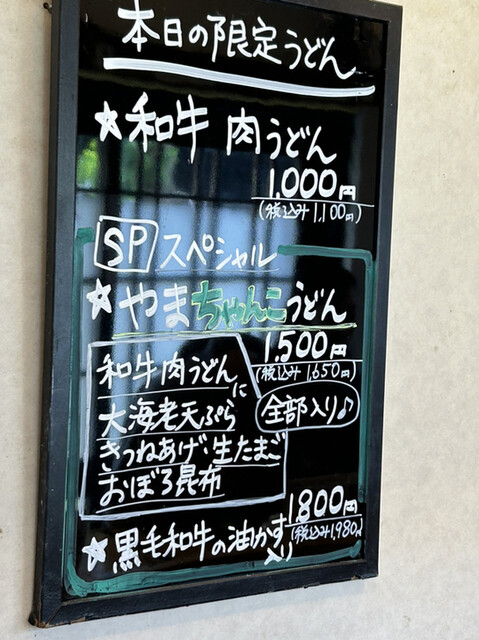 本日の限定うどん
☆和牛 肉うどん
1.000円
(税込み1,100円)
SP スペシャル
☆やまちゃんこうどん
1.500円
(税込み1,650円)
和牛肉うどんに
大海老天ぷら
きつねあげ・生たまご
おぼろ昆布
全部入り♪
1800円
(税込み1,980円)
☆黒毛和牛の油かす入り